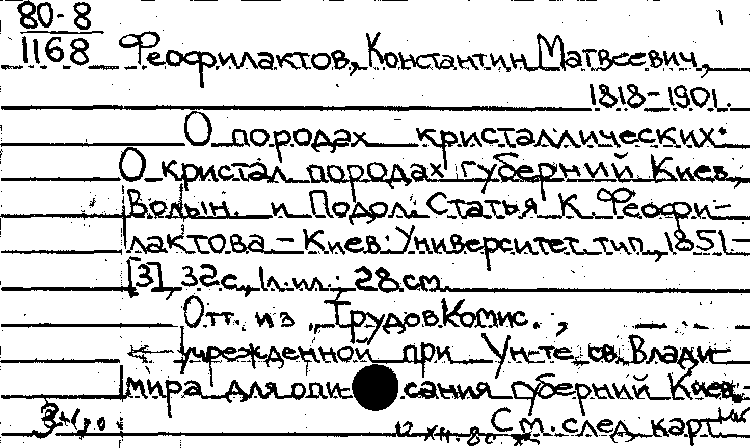 80-8
1168 Феофилактов, Константин Матвеевич,
1818-1901.
О породах кристаллических:
О кристал. породах губерний Киев.,
Волын. и Подол.: Статья К. Феофи-
лактова - Киев: Университет. тип., 1851-
[3], 32 с., 1 л. ил.; 28 см.
Отт. из „Трудов Комис.,
учрежденной при Ун-те св. Влади-
мира для описания губерний Киев.
См. след. карт